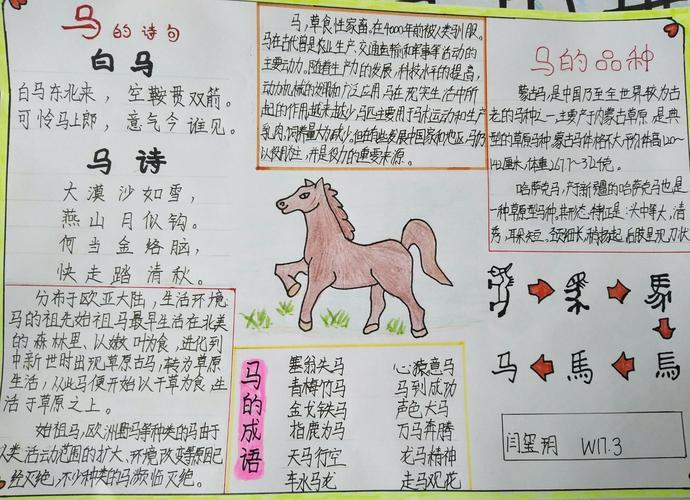 马的诗句
白马
白马东北来，空鞍贯双箭。
可怜马上郎，意气今谁见。
马诗
大漠沙如雪，
燕山月似钩。
何当金络脑，
快走踏清秋。
分布于欧亚大陆，生活环境
马的祖先始祖马最早生活在北美
的森林里、以嫩叶为食，进化到
中新世时出现草原古马，转为草原
生活，从此马便开始以干草为食，生
活于草原之上。
始祖马，欧洲野马等种类的马由于
人类活动范围的扩大、环境改变等原因已
经灭绝，不少种类的马濒临灭绝。
马，草食性家畜。在4000年前被人类驯服。
马在古代曾是农业生产、交通运输和军事等活动的
主要动力。随着生产力的发展，科技水平的提高，
动力机械的发明和广泛应用，马在现实生活中所
起的作用越来越少，马匹主要用于马术运动和生产
乳肉，饲养量大为减少。但在有些发展中国家和地区，马仍
以役用为主，并是役力的重要来源。
马的品种
蒙古马，是中国乃至全世界较为古
老的马种之一，主要产于内蒙古草原，是典
型的草原马种。蒙古马体格不大，平均体高120~
142厘米，体重267.7~372千克。
哈萨克马，产于新疆的哈萨克马也是
一种草原型马种，其形态特征是：头中等大，清
秀，耳朵短。颈细长，稍扬起，后肢呈现刀状
馬
馬
马
马的成语
塞翁失马 心猿意马
青梅竹马 马到成功
金戈铁马 声色犬马
指鹿为马 万马奔腾
天马行空 龙马精神
车水马龙 走马观花
闫玺玥 W17.3